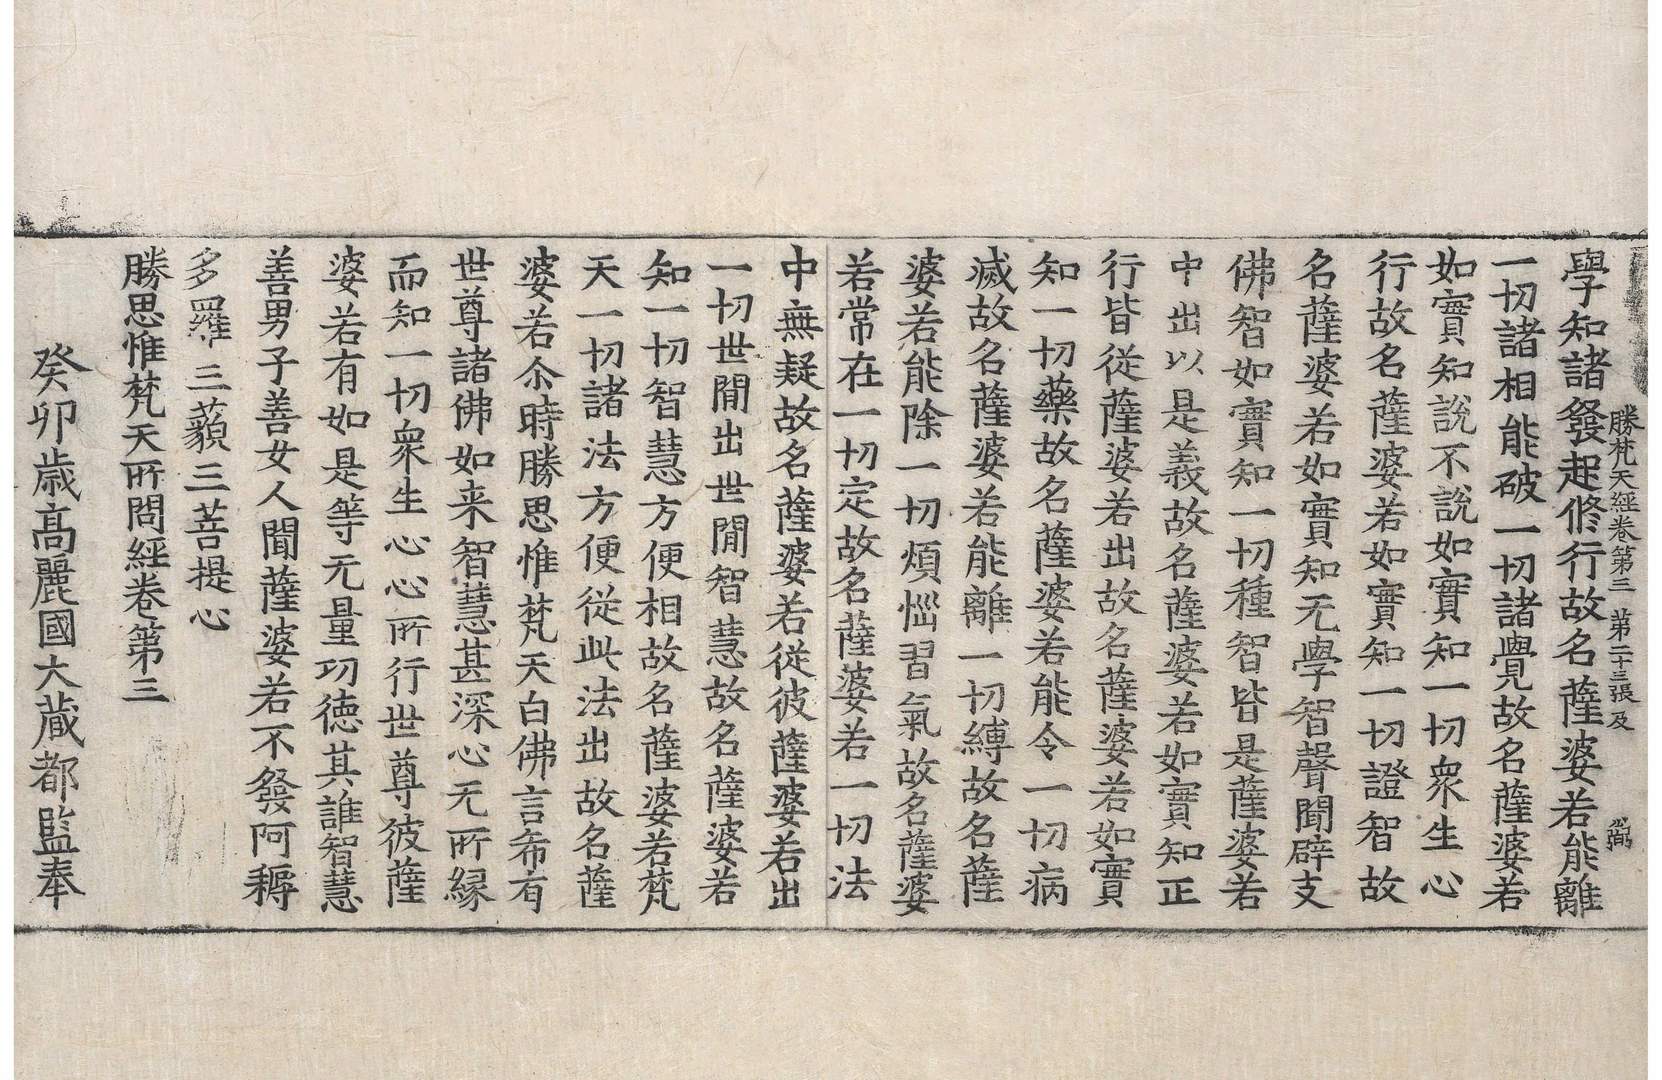 勝梵天經卷第三 第二十三張 及
學知諸發起修行故名薩婆若能離
一切諸相能破一切諸覺故名薩婆若
如實知說不說如實知一切衆生心
行故名薩婆若如實知一切證智故
名薩婆若如實知无學智聲聞辟支
佛智如實知一切種智皆是薩婆若
中出以是義故名薩婆若如實知正
行皆從薩婆若出故名薩婆若如實
知一切藥故名薩婆若能令一切病
滅故名薩婆若能離一切縛故名薩
婆若能除一切煩惱習氣故名薩婆
若常在一切定故名薩婆若一切法
中無疑故名薩婆若從彼薩婆若出
一切世間出世間智慧故名薩婆若
知一切智慧方便相故名薩婆若梵
天一切諸法方便從此法出故名薩
婆若尒時勝思惟梵天白佛言希有
世尊諸佛如来智慧甚深心无所縁
而知一切衆生心心所行世尊彼薩
婆若有如是等无量功徳其誰智慧
善男子善女人聞薩婆若不發阿耨
多羅三藐三菩提心
勝思惟梵天所問經卷第三
癸卯歳高麗國大蔵都監奉